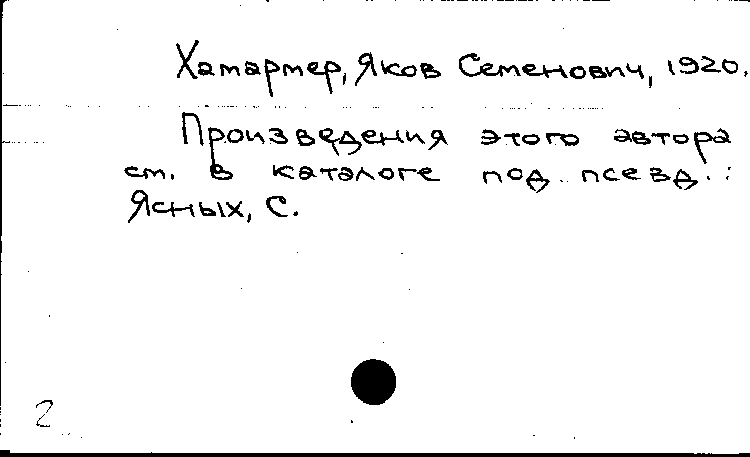 Хатармер, Яков Семенович, 1920.
Произведения этого автора
см. в каталоге под псевд.:
Ясных, С.
2